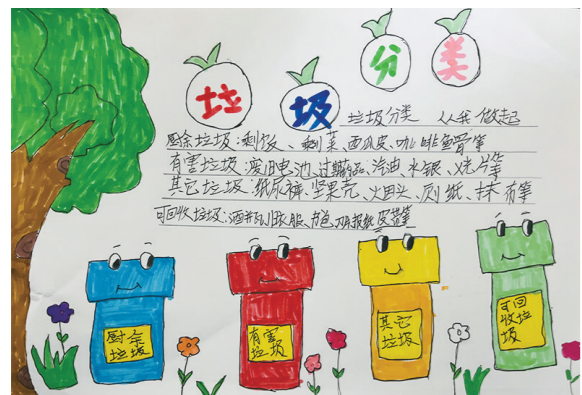 垃圾分类
垃圾分类 从我做起
厨余垃圾:剩饭、剩菜、西瓜皮、咖啡鱼骨等
有害垃圾:废旧电池、过期药品、汽油、水银、
其它垃圾:纸尿裤、坚果壳、火因头、厕纸、等
可回收垃圾:衣服、书包、报纸皮革等
厨余
垃圾
有害
垃圾
其它
垃圾
可回
收垃
圾